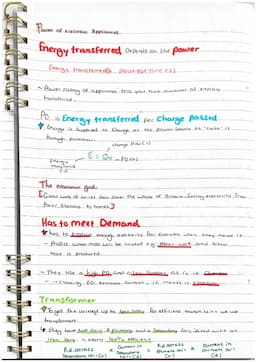 Power of Electrical Appliances.
Energy transferred Depends on the power
Energy transferred = power x time (s)
~ Power rating of appliance tells you how much of energy
transferred.
PD is Energy transferred per Charge passed
Energy is supplied to charge at the power source to "raise" it
through potential.
charge flow (c)
Energy
transferred
(J)
E = QV
PD (V)
The National grid
Giant web of wires that cover the whole of Britain, getting electricity from
Power Stations to homes
Has to meet Demand
has to produce enough electricity for everyone when they need it
~ Predict when most will be needed eg. Peak, work and school
more is produced.
~ They use a high PD and a low current
~ increasing PD decreases current
Transformer
To get the voltage up to
for efficient transmission we use
transformers.
they have two coils, a primary and a secondary coil, joined with an
iron core.
P.d. across
secondary coil (V)
x
Current in
secondary
coil (A)
=
P.d. across
primary coil (V)
x
Current in
primary coil (A)